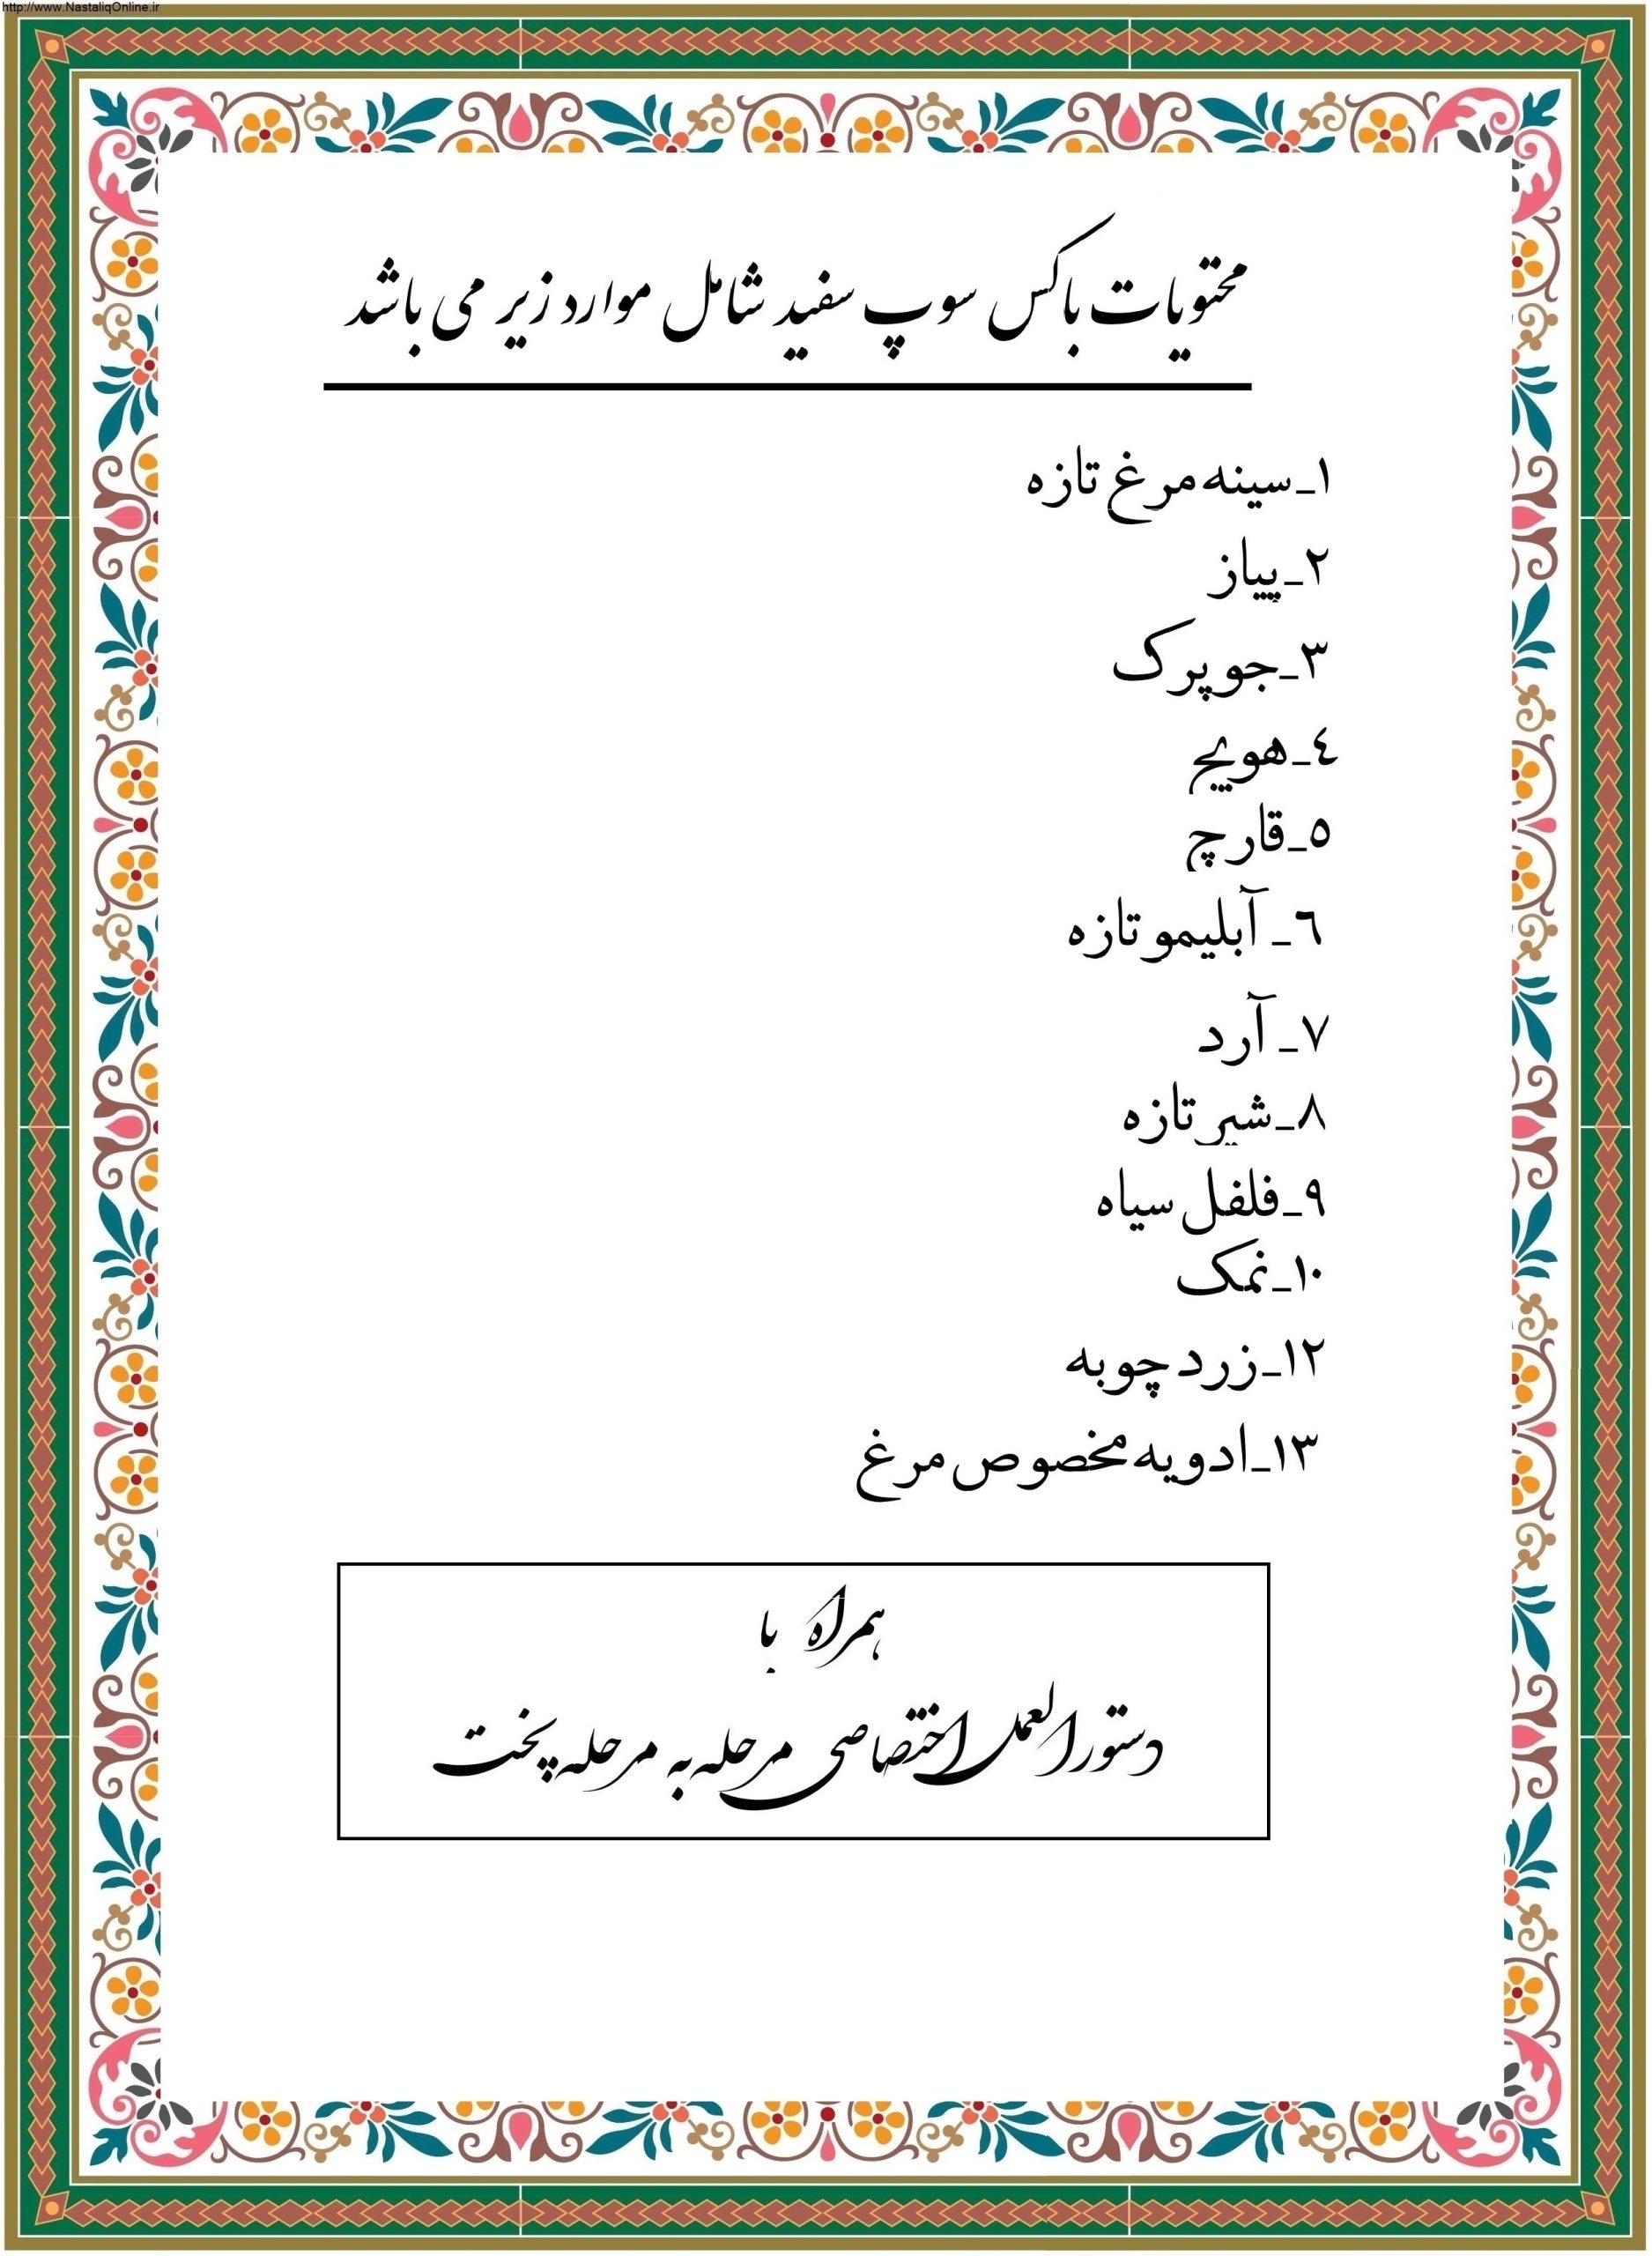 http://www.NastaliqOnline.ir
محتویات باکس سوپ سفید شامل موارد زیر می باشد
١_سینه مرغ تازه
٢_پیاز
٣_جو پرک
٤_هویج
٥_قارچ
٦_ آبلیمو تازه
٧_ آرد
٨_شیر تازه
٩_فلفل سیاه
١٠_نمک
١٢_زرد چوبه
١٣_ادویه مخصوص مرغ
همراه با
دستورالعمل اختصاصی مرحله به مرحله پخت